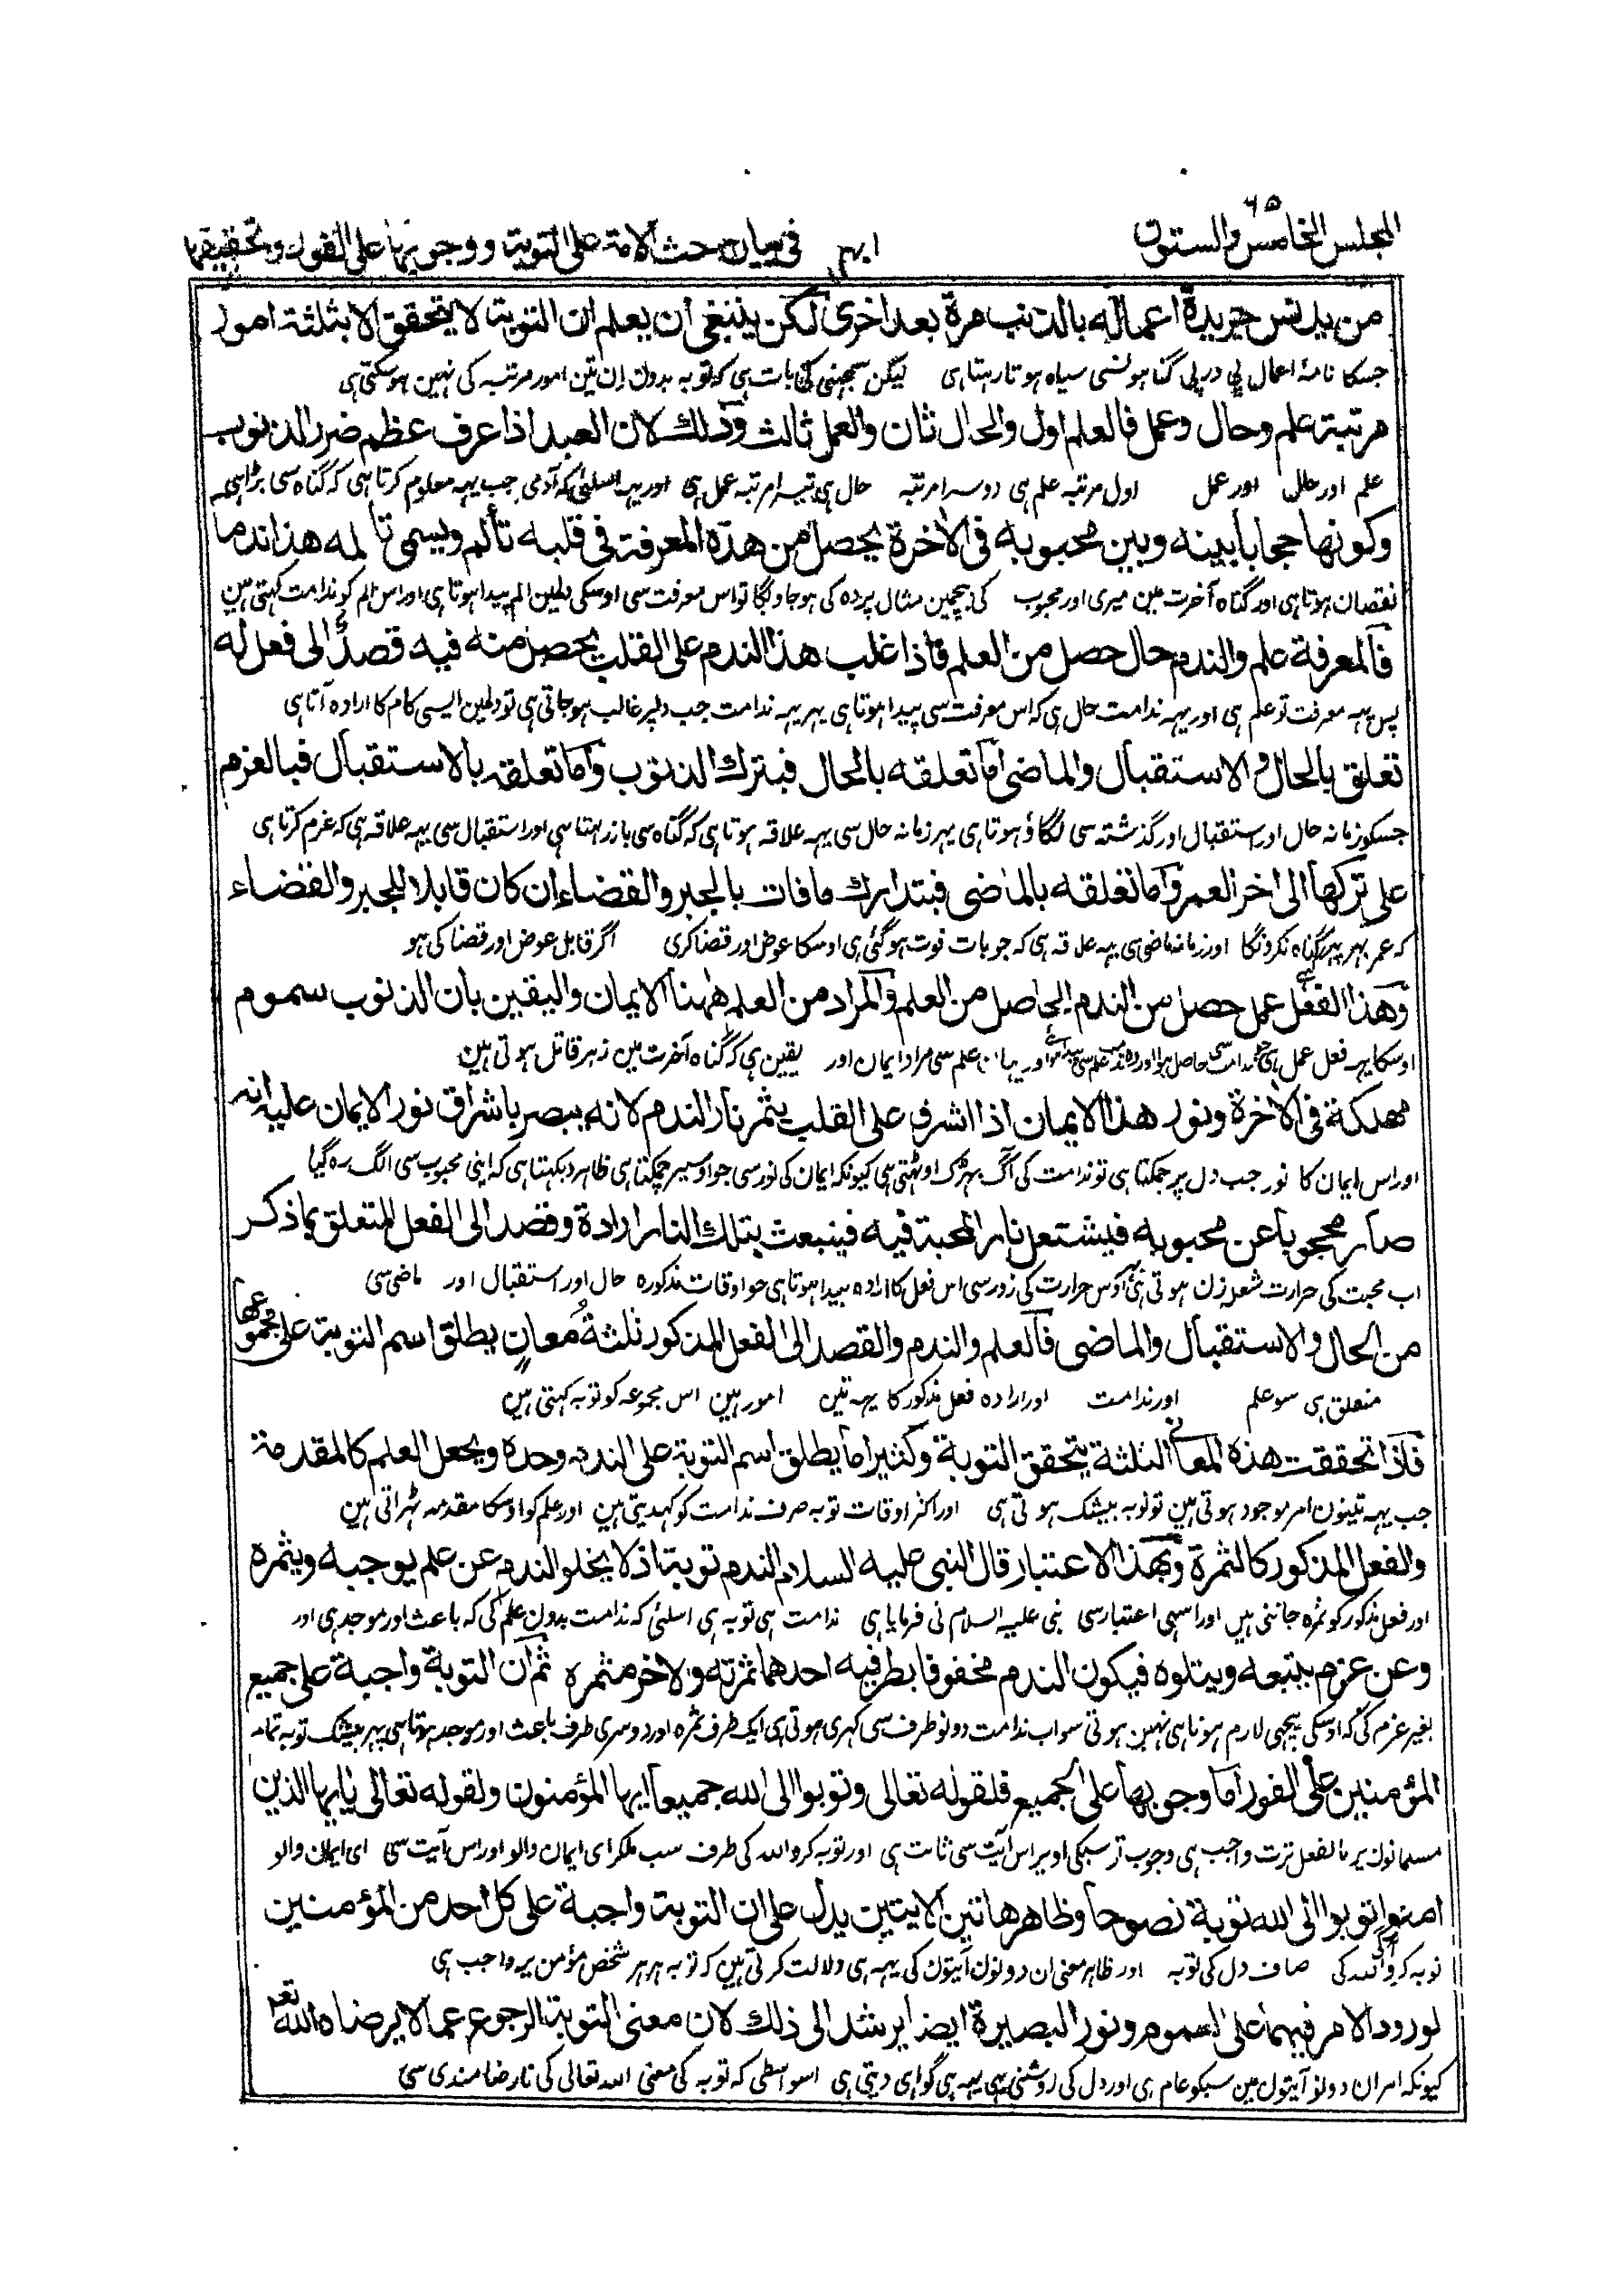 المجلس الخامس والستون ٦٥
٤٤١
في بيان حث الامة على التوبة ووجوبها على الفور وتحقيقها
من يدنس جريدة اعماله بالذنب مرة بعد اخرى لكن ينبغي أن يعلم ان التوبة لا يتحقق الا بثلثة امور
جسکا نامۂ اعمال پی در پی گناہونسی سیاہ ہوتا رہتا ہی لیکن سمجہنی کی بات ہی کہ توبہ بدون ان تین امور مرتبہ کی نہین ہوسکتی ہی
مرتبة علم وحال وعمل فالعلم اول والحال ثان والعمل ثالث وذلك لان العبد اذا عرف عظم ضرر الذنوب
علم اور حال اور عمل اول مرتبہ علم ہی دوسرا مرتبہ حال ہی تیسرا مرتبہ عمل ہی اور یہہ اسلئی کہ آدمی جب یہہ معلوم کرتا ہی کہ گناہ سی بڑا ہی
وكونها حجابا بينه وبين محبوبه في الآخرة يحصل من هذه المعرفة في قلبه تألم ويسمى تألمه هذا ندما
نقصان ہوتا ہی اور گناہ آخرت مین میری اور محبوب کی بیچمین مثال پردہ کی ہوجاویگا تو اس معرفت سی اوسکی دلمین الم پیدا ہوتا ہی اور اس الم کو ندامت کہتی ہین
فالمعرفة علم والندم حال حصل من العلم فاذا غلب هذا الندم على القلب يحصل منه فيه قصد الى فعل له
پس یہہ معرفت تو علم ہی اور یہہ ندامت حال ہی کہ اس معرفت سی پیدا ہوتا ہی پہر یہہ ندامت جب دلپر غالب ہوجاتی ہی تو دلمین ایسی کام کا ارادہ آتا ہی
تعلق بالحال والاستقبال والماضي اما تعلقه بالحال فبترك الذنوب واما تعلقه بالاستقبال فبالعزم
جسکو زمانہ حال اور استقبال اور گذشتہ سی لگاؤ ہوتا ہی پہر زمانہ حال سی یہہ علاقہ ہوتا ہی کہ گناہ سی باز رہتا ہی اور استقبال سی یہہ علاقہ ہی کہ عزم کرتا ہی
على تركها الى اخر العمر واما تعلقه بالماضي فبتدارك ما فات بالجبر والقضاء ان كان قابلا للجبر والقضاء
کہ عمر بہر پہر گناہ نکرونگا اور زمانہ ماضی سی یہہ علاقہ ہی کہ جو بات فوت ہوگئی ہی اوسکا عوض اور قضا کری اگر قابل عوض اور قضا کی ہو
وهذا الفعل عمل حصل من الندم الحاصل من العلم والمراد من العلم ههنا الايمان واليقين بان الذنوب سموم
اوسکا یہہ فعل عمل ہی جو ندامت سی حاصل ہوا اور وہ ندامت علم سی اور یہان علم سی مراد ایمان اور یقین ہی کہ گناہ آخرت مین زہر قاتل ہوتی ہین
مهلكة في الاخرة ونور هذا الايمان اذا اشرق على القلب يثمر نار الندم لانه يبصر باشراق نور الايمان عليه انه
اور اس ایمان کا نور جب دل پر چمکتا ہی تو ندامت کی آگ بہڑک اوٹہتی ہی کیونکہ ایمان کی نور سی جو اوسپر چمکتا ہی ظاہر دیکہتا ہی کہ اپنی محبوب سی الگ رہ گیا
صار محجوبا عن محبوبه فيشتعل نار المحبة فيه فينبعث بتلك النار ارادة وقصد الى الفعل المتعلق بما ذكر
اب محبت کی حرارت شعلہ زن ہوتی ہی اوس حرارت کی زور سی اس فعل کا ارادہ پیدا ہوتا ہی جو اوقات مذکورہ حال اور استقبال اور ماضی سی
من الحال والاستقبال والماضي فالعلم والندم والقصد الى الفعل المذكور ثلثة معان يطلق اسم التوبة على مجموعها
متعلق ہی سو علم اور ندامت اور ارادہ فعل مذکور کا یہہ تین امور ہین اس مجموعہ کو توبہ کہتی ہین
فاذا تحققت هذه المعاني الثلثة يتحقق التوبة وكثيرا ما يطلق اسم التوبة على الندم وحده ويجعل العلم كالمقدمة
جب یہہ تینون امر موجود ہوتی ہین تو توبہ بیشک ہوتی ہی اور اکثر اوقات توبہ صرف ندامت کو کہدیتی ہین اور علم کو اوسکا مقدمہ ٹہراتی ہین
والفعل المذكور كالثمرة وبهذا الاعتبار قال النبي عليه السلام الندم توبة اذ لا يخلو الندم عن علم يوجبه ويثمره
اور فعل مذکور کو ثمرہ جانتی ہین اور اسی اعتبار سی نبی علیہ السلام نی فرمایا ہی ندامت ہی توبہ ہی اسلئی کہ ندامت بدون علم کی کہ باعث اور موجد ہی اور
وعن عزم يتبعه ويتلوه فيكون الندم محفوفا بطرفيه احدهما ثمرته والاخر مثمره ثم ان التوبة واجبة على جميع
بغیر عزم کی کہ اوسکی پیچہی لازم ہونا ہی نہین ہوتی سو اب ندامت دونو طرف سی گہری ہوتی ہی ایک طرف ثمرہ اور دوسری طرف باعث اور موجد ہوتا ہی پہر بیشک توبہ تمام
المؤمنين على الفور اما وجوبها على الجميع فلقوله تعالى وتوبوا الى الله جميعا ايها المؤمنون ولقوله تعالى يايها الذين
مسلمانون پر بالفعل ترت واجب ہی وجوب تو سبکی اوپر اس آیت سی ثابت ہی اور توبہ کرو اللہ کی طرف سب ملکر ای ایمان والو اور اس آیت سی ای ایمان والو
امنوا توبوا الى الله توبة نصوحا وظاهر هاتين الايتين يدل على ان التوبة واجبة على كل احد من المؤمنين
توبہ کرو اللہ کی آگی صاف دل کی توبہ اور ظاہر معنی ان دونون آیتون کی یہہ ہی دلالت کرتی ہین کہ توبہ ہر ہر شخص مؤمن پر واجب ہی
لورود الامر فيهما على العموم ونور البصيرة ايضا يرشد الى ذلك لان معنى التوبة الرجوع عما لا يرضاه الله تعه
کیونکہ امر ان دونو آیتون مین سبکو عام ہی اور دل کی روشنی بہی یہہ ہی گواہی دیتی ہی اسواسطی کہ توبہ کی معنی اللہ تعالی کی نارضامندی سی